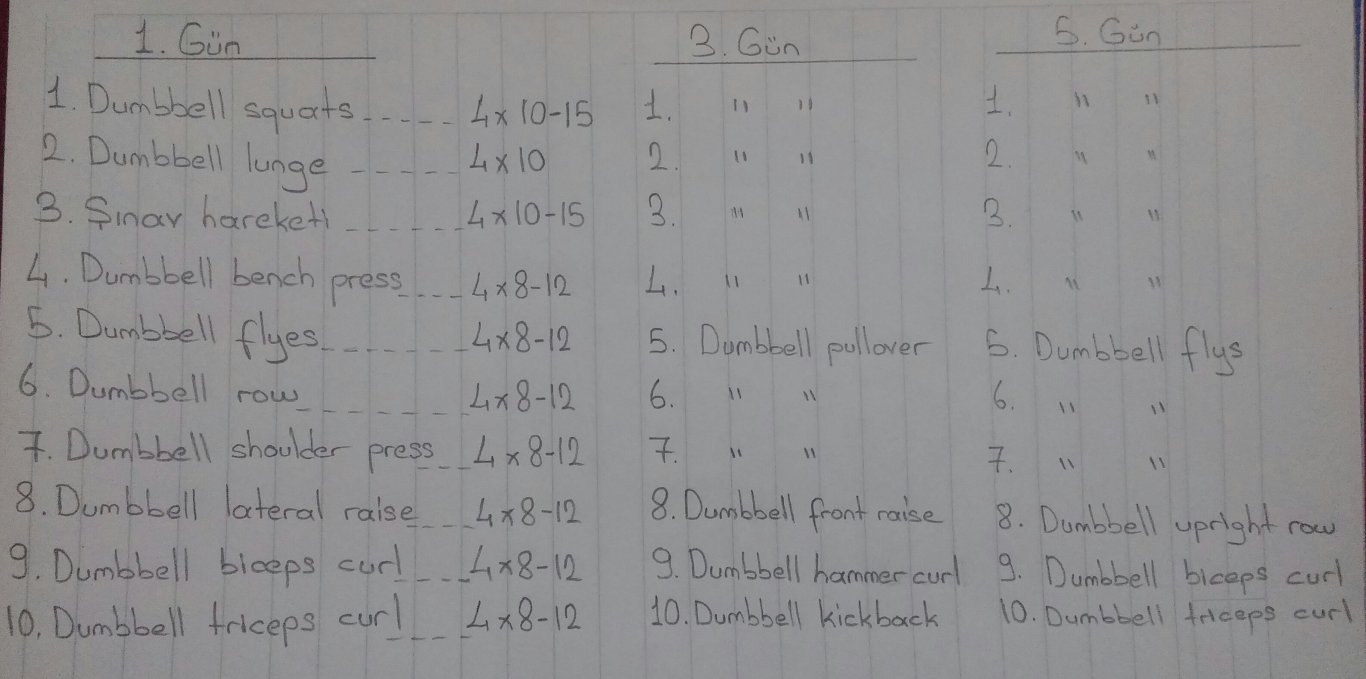 1. Gün
1. Dumbbell squats ----- 4x10-15
2. Dumbbell lunge ----- 4x10
3. Şınav hareketi ------ 4x10-15
4. Dumbbell bench press ---- 4x8-12
5. Dumbbell flyes ------- 4x8-12
6. Dumbbell row ------- 4x8-12
7. Dumbbell shoulder press --- 4x8-12
8. Dumbbell lateral raise ---- 4x8-12
9. Dumbbell biceps curl ---- 4x8-12
10. Dumbbell triceps curl ---- 4x8-12
3. Gün
1. " "
2. " "
3. " "
4. " "
5. Dumbbell pullover
6. " "
7. " "
8. Dumbbell front raise
9. Dumbbell hammer curl
10. Dumbbell kickback
5. Gün
1. " "
2. " "
3. " "
4. " "
5. Dumbbell flys
6. " "
7. " "
8. Dumbbell upright row
9. Dumbbell biceps curl
10. Dumbbell triceps curl